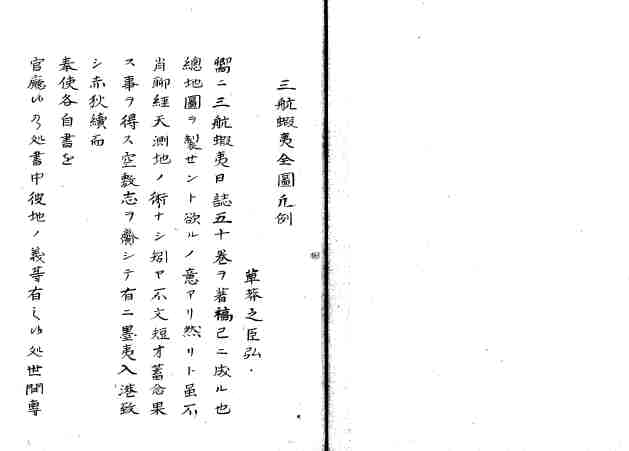 三航蝦夷全圖凡例
草莽之臣弘
嚮ニ三航蝦夷日誌五十卷ヲ著稿已ニ成ル也
總地圖ヲ製セント欲ルノ意アリ然リト虽不
肖聊經天測地ノ術ナシ矧ヤ不文短才蓄念果
ス事ヲ得ス空敷志ヲ齎シテ有ニ墨夷入港致
シ赤狄續而
奉使各自書を
官廳ゟ乃処書中彼地ノ義等有之ゟ処世間専